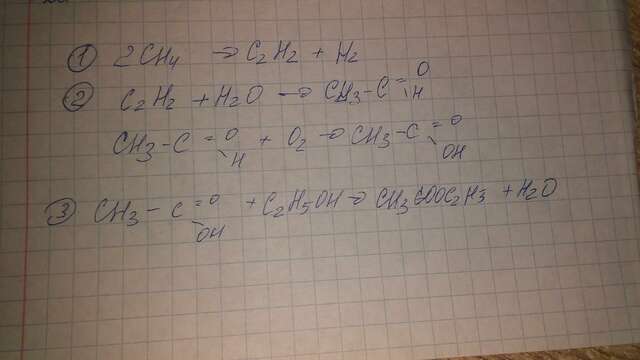 ① 2CH4 → C2H2 + H2
② C2H2 + H2O → CH3-C=O-H
CH3-C=O-H + O2 → CH3-C=O-OH
③ CH3-C=O-OH + C2H5OH → CH3COOC2H5 + H2O